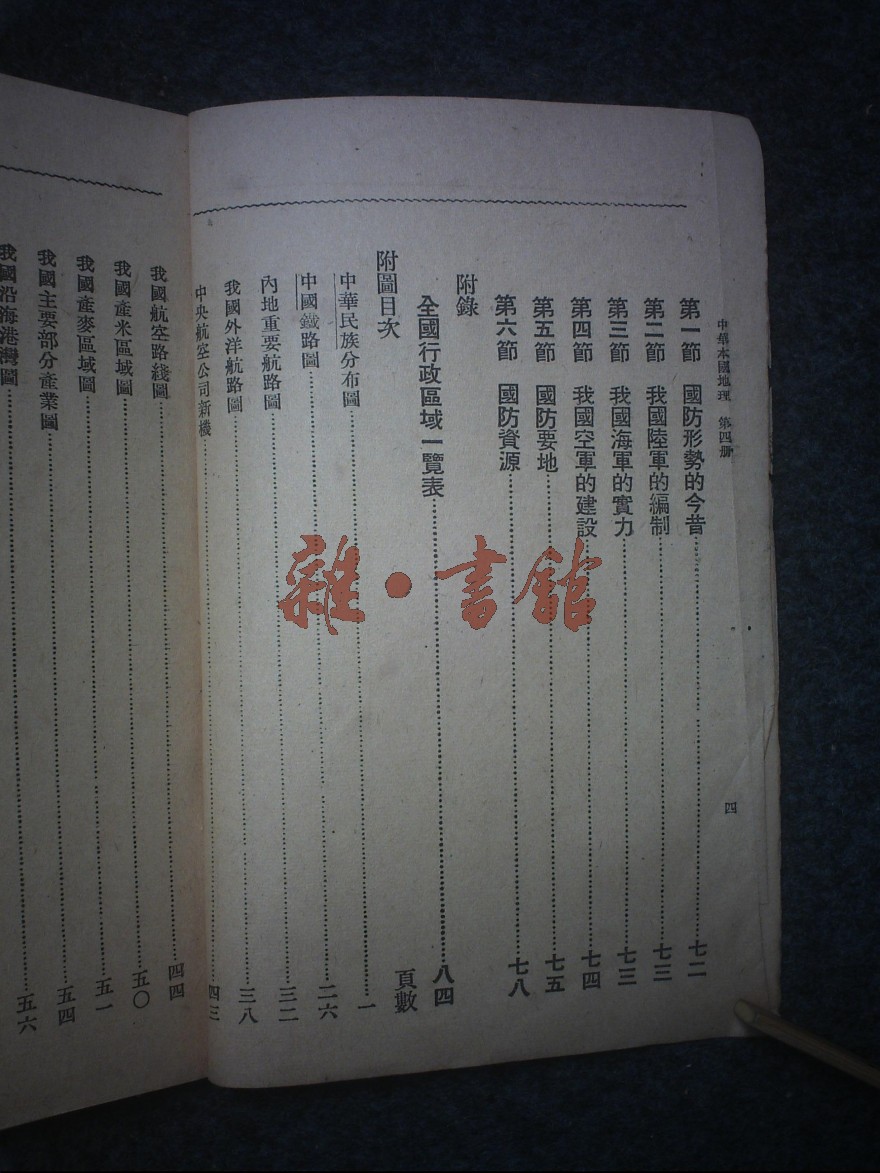 中華本國地理　第四册　四
第一節　國防形勢的今昔……七二
第二節　我國陸軍的編制……七三
第三節　我國海軍的實力……七三
第四節　我國空軍的建設……七四
第五節　國防要地……七五
第六節　國防資源……七八
附錄
全國行政區域一覽表……八四
附圖目次　頁數
中華民族分布圖……一
中國鐵路圖……二六
內地重要航路圖……三二
我國外洋航路圖……三八
中央航空公司新機……四三
我國航空路綫圖……四四
我國產米區域圖……五〇
我國產麥區域圖……五一
我國主要部分產業圖……五四
我國沿海港灣圖……五六
雜·書館